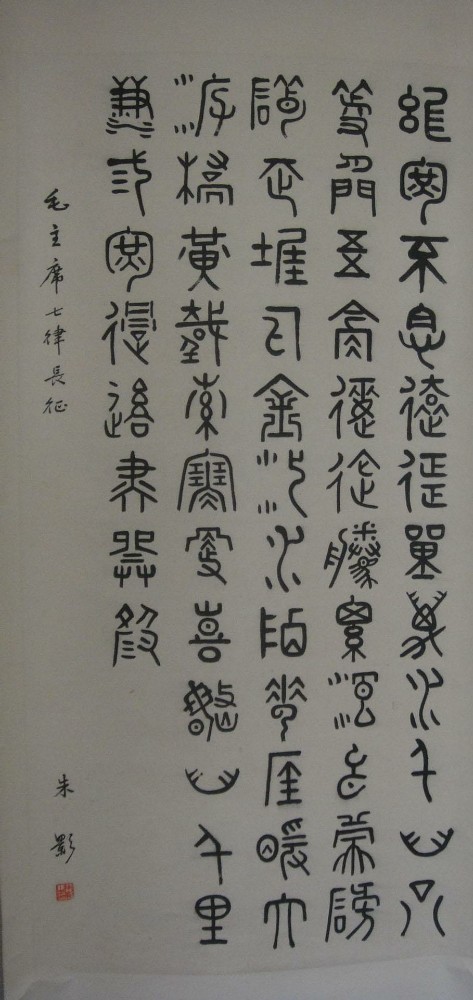 紅軍不怕遠征難萬水千山只
等閒五嶺逶迤騰細浪烏蒙磅
礴走泥丸金沙水拍雲崖暖大
渡橋橫鐵索寒更喜岷山千里
雪三軍過後盡開顏
毛主席七律長征
朱影